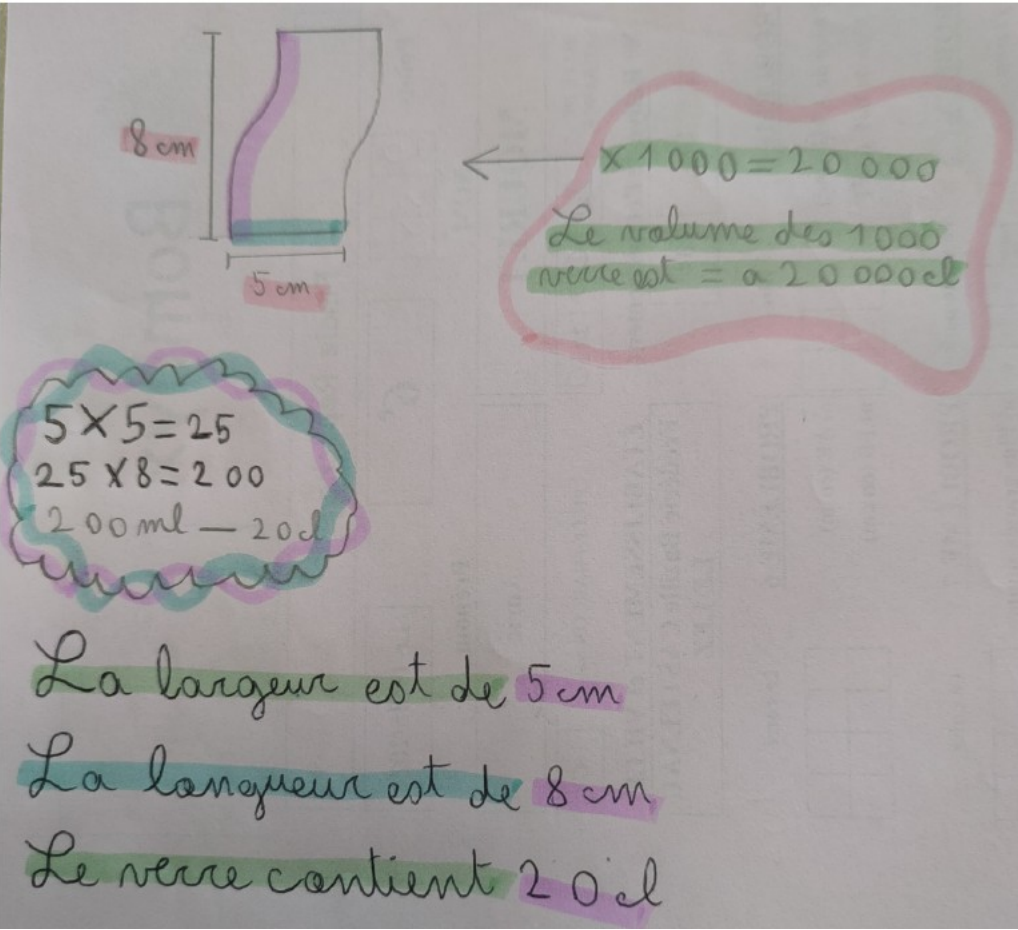 8 cm
5 cm
× 1000 = 20 000
Le volume des 1000
verre est = a 20 000 cl
5 × 5 = 25
25 × 8 = 200
200 ml — 20 cl
La largeur est de 5 cm
La longueur est de 8 cm
Le verre contient 20 cl